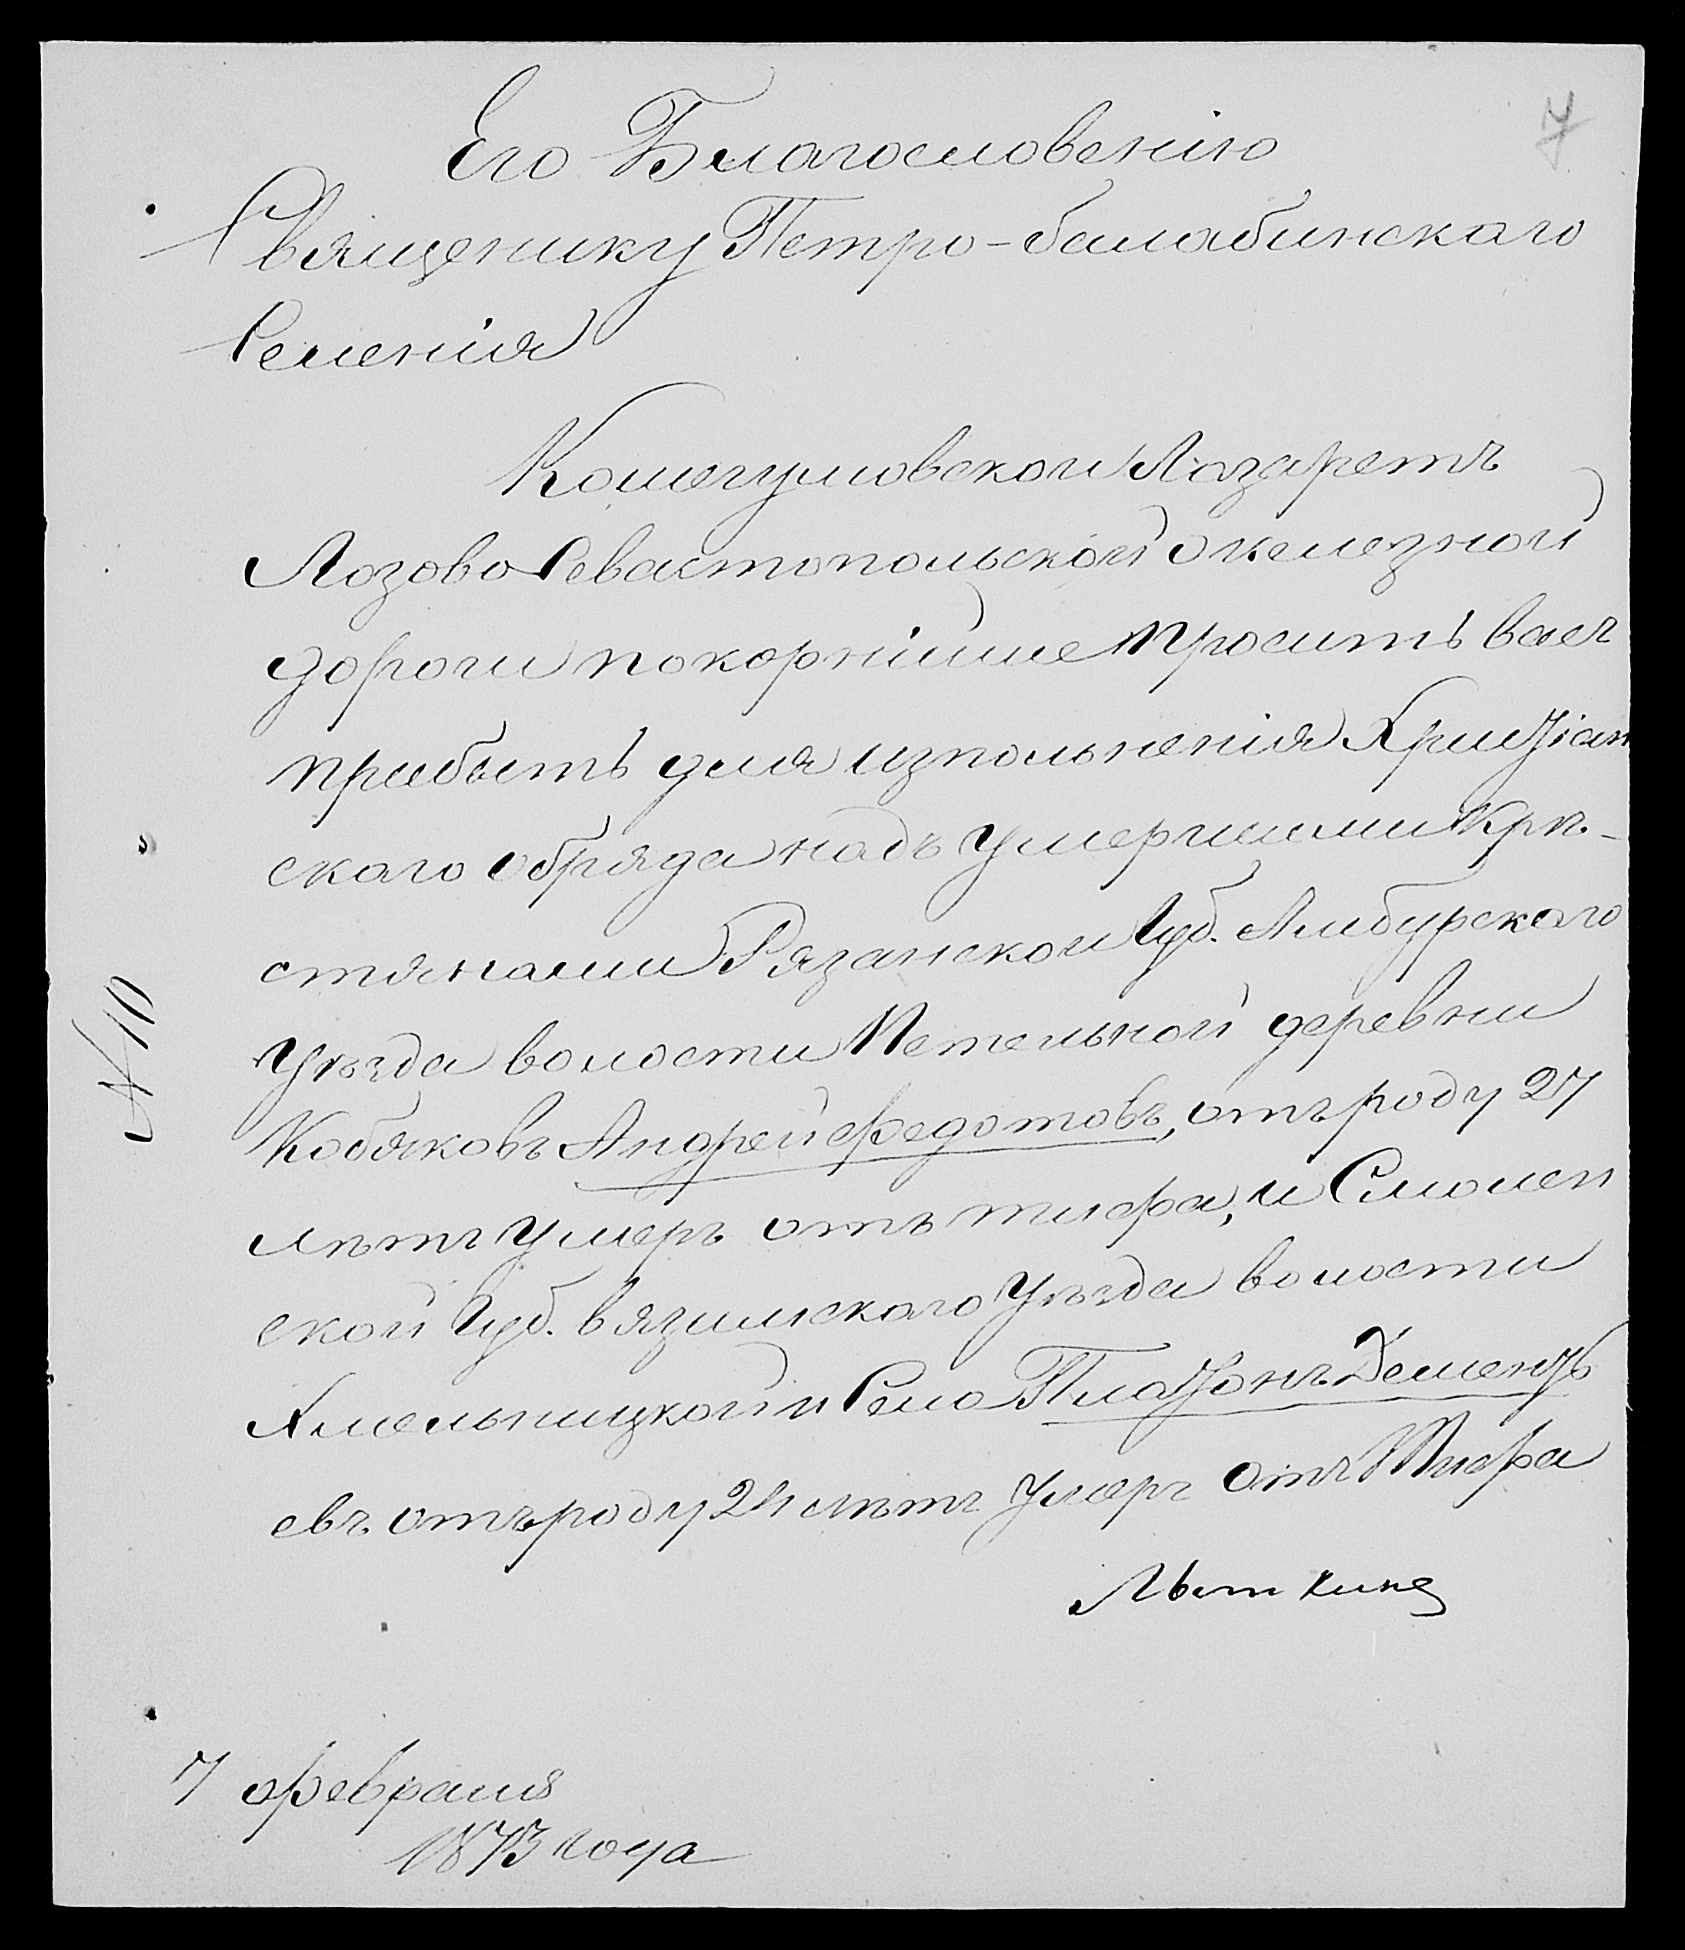 7
Его Благословенію
Священику Петро-балабинскаго
Селенія
Кошегумовской Лазаретъ
Лозово Севастопольской желѣзной
дороги покорнійше просить васъ
прибыть для изпольненія Хрисtіан
скаго обряда надъ умершими Крѣ-
стянами Рязанской Губ. Амбурскаго
Уѣзда волости Петельной деревни
Кобяковъ Андрей Федотовъ, отъ роду 27
лѣтъ умеръ отъ тифа, и Смолен
ской Губ. вяземскаго Уѣзда волости
Хмельницкой и Село Платонъ Дементь
евъ отъ роду 24 лѣтъ Умеръ отъ Тифа
Лыткинъ
N 10
7 февраля
1873 года